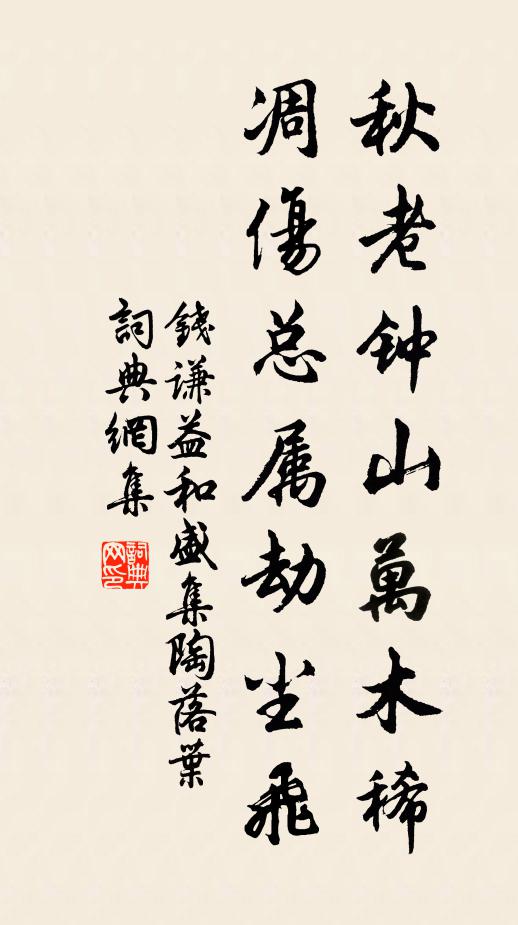 秋老钟山萬木稀
凋傷总属劫尘飛
錢谦益和盛集陶落葉
詞典網集
詞典网印